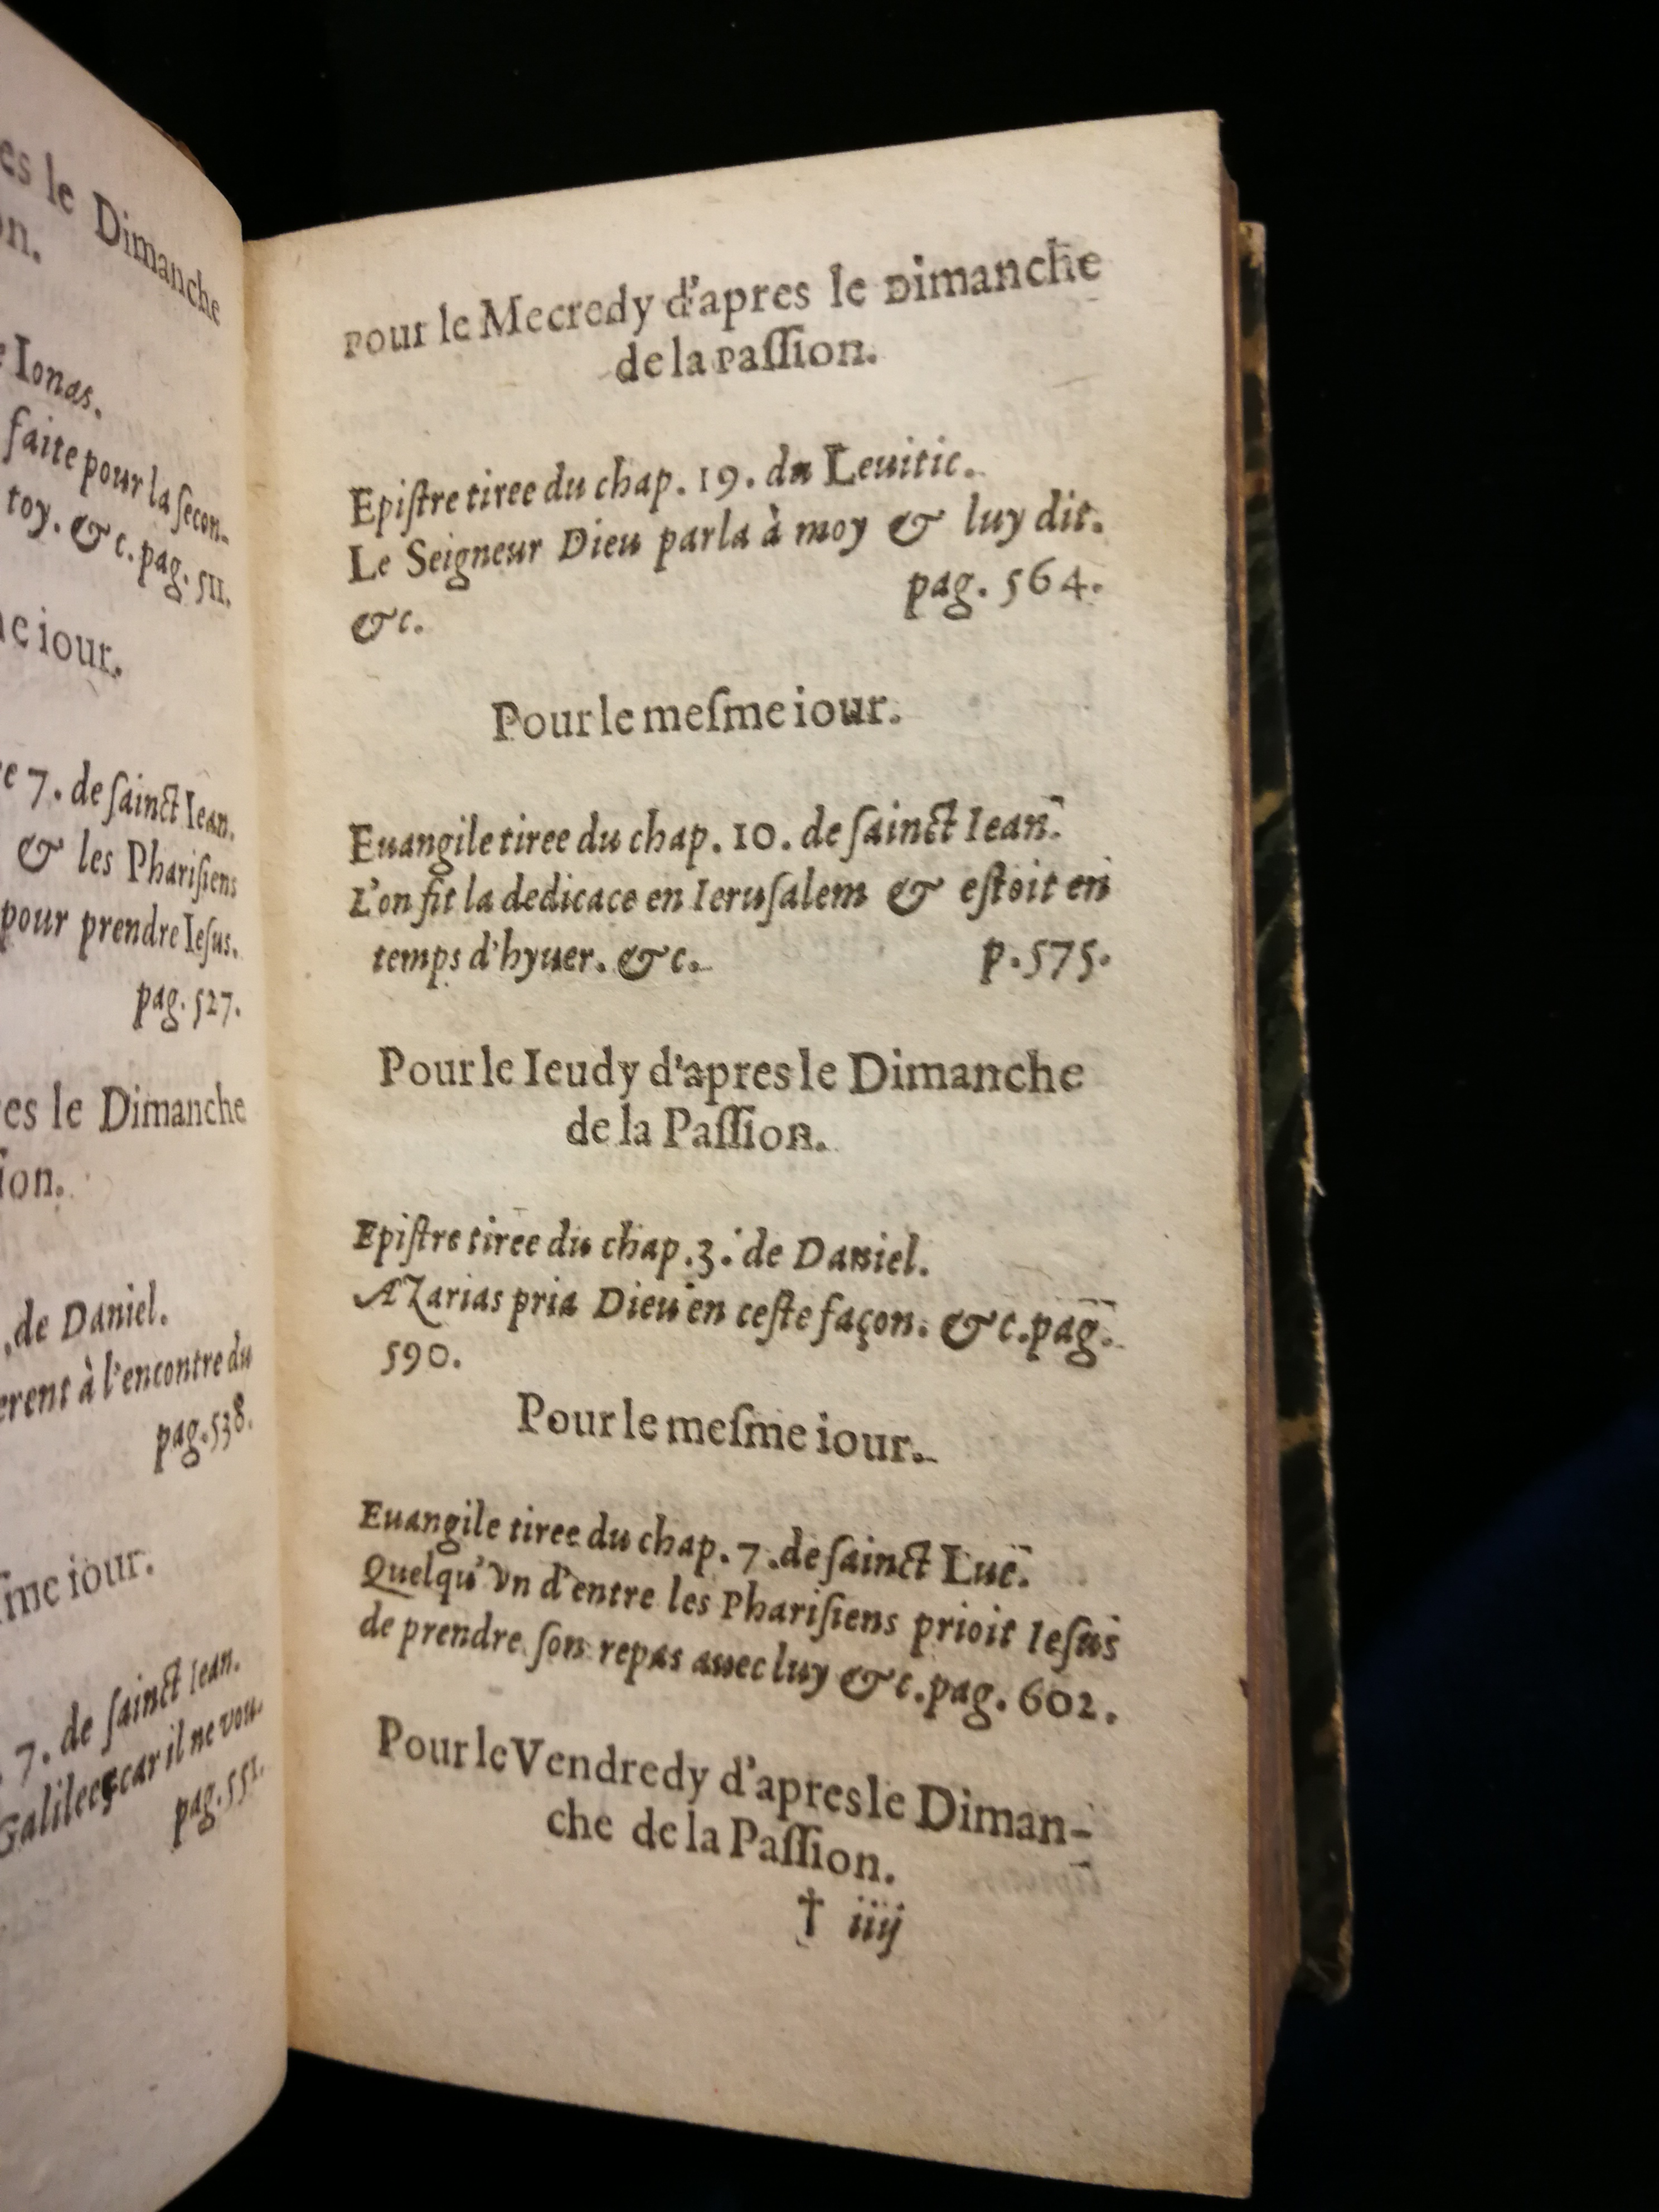 es le Dimanche
on.
Ionas.
faite pour la ſecon-
toy. & c. pag. 511.
me iour.
7. de ſainct Iean.
& les Phariſiens
pour prendre Ieſus.
pag. 527.
es le Dimanche
ion.
de Daniel.
erent à l'encontre du
pag. 538.
ſme iour.
7. de ſainct Iean.
Galilee, car il ne vou-
pag. 551.
Pour le Mecredy d'apres le Dimanche
de la Paſſion.
Epiſtre tiree du chap. 19. du Leuitic.
Le Seigneur Dieu parla à moy & luy dit.
&c. pag. 564.
Pour le meſme iour.
Euangile tiree du chap. 10. de ſainct Iean.
L'on fit la dedicace en Ieruſalem & eſtoit en
temps d'hyuer. &c. p. 575.
Pour le Ieudy d'apres le Dimanche
de la Paſſion.
Epiſtre tiree du chap. 3. de Daniel.
AZarias pria Dieu en ceſte façon. &c. pag.
590.
Pour le meſme iour.
Euangile tiree du chap. 7. de ſainct Luc.
Quelqu'vn d'entre les Phariſiens prioit Ieſus
de prendre ſon repas auec luy &c. pag. 602.
Pour le Vendredy d'apres le Diman-
che de la Paſſion.
† iiij